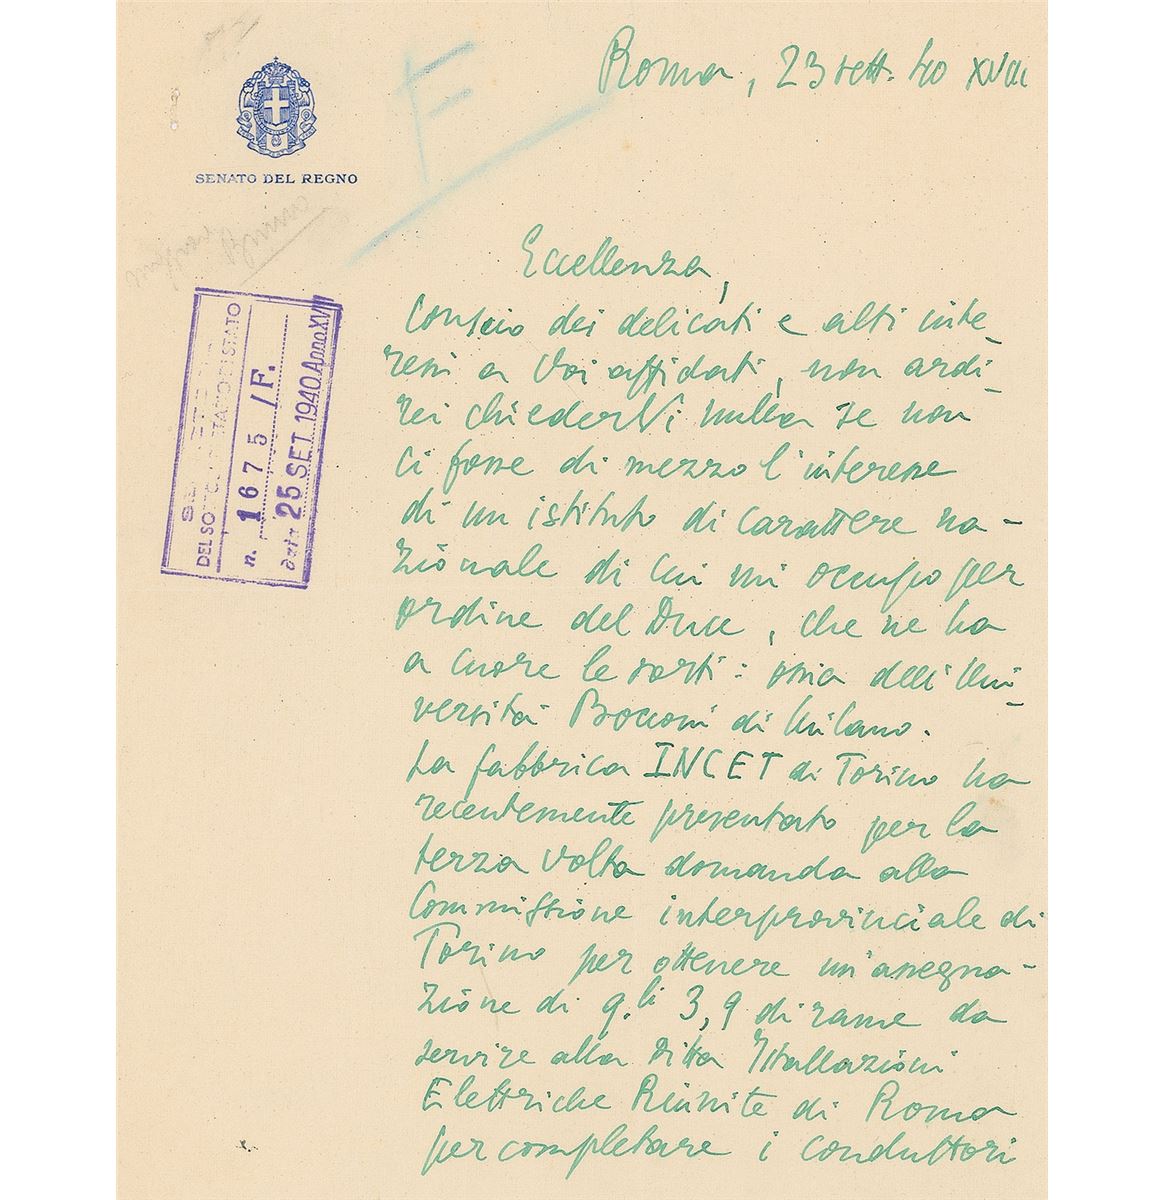 Roma, 23 sett. 40 XVIII
F
SENATO DEL REGNO
Eccellenza,
conscio dei delicati e alti inte-
ressi a Voi affidati, non ardi-
rei chiederVi nulla se non
ci fosse di mezzo l'interesse
di un istituto di carattere na-
zionale di cui mi occupo per
ordine del Duce, che ne ha
a cuore le sorti: ossia dell'Uni-
versità Bocconi di Milano.
La fabbrica INCET di Torino ha
recentemente presentato per la
terza volta domanda alla
Commissione interprovinciale di
Torino per ottenere un'assegna-
zione di q.li 3,9 di rame da
servire alla ditta Istallazioni
Elettriche Riunite di Roma
per completare i conduttori
DEL SOTTOSEGRETARIO DI STATO
n. 1675 /F.
data 25 SET. 1940 Anno XVIII